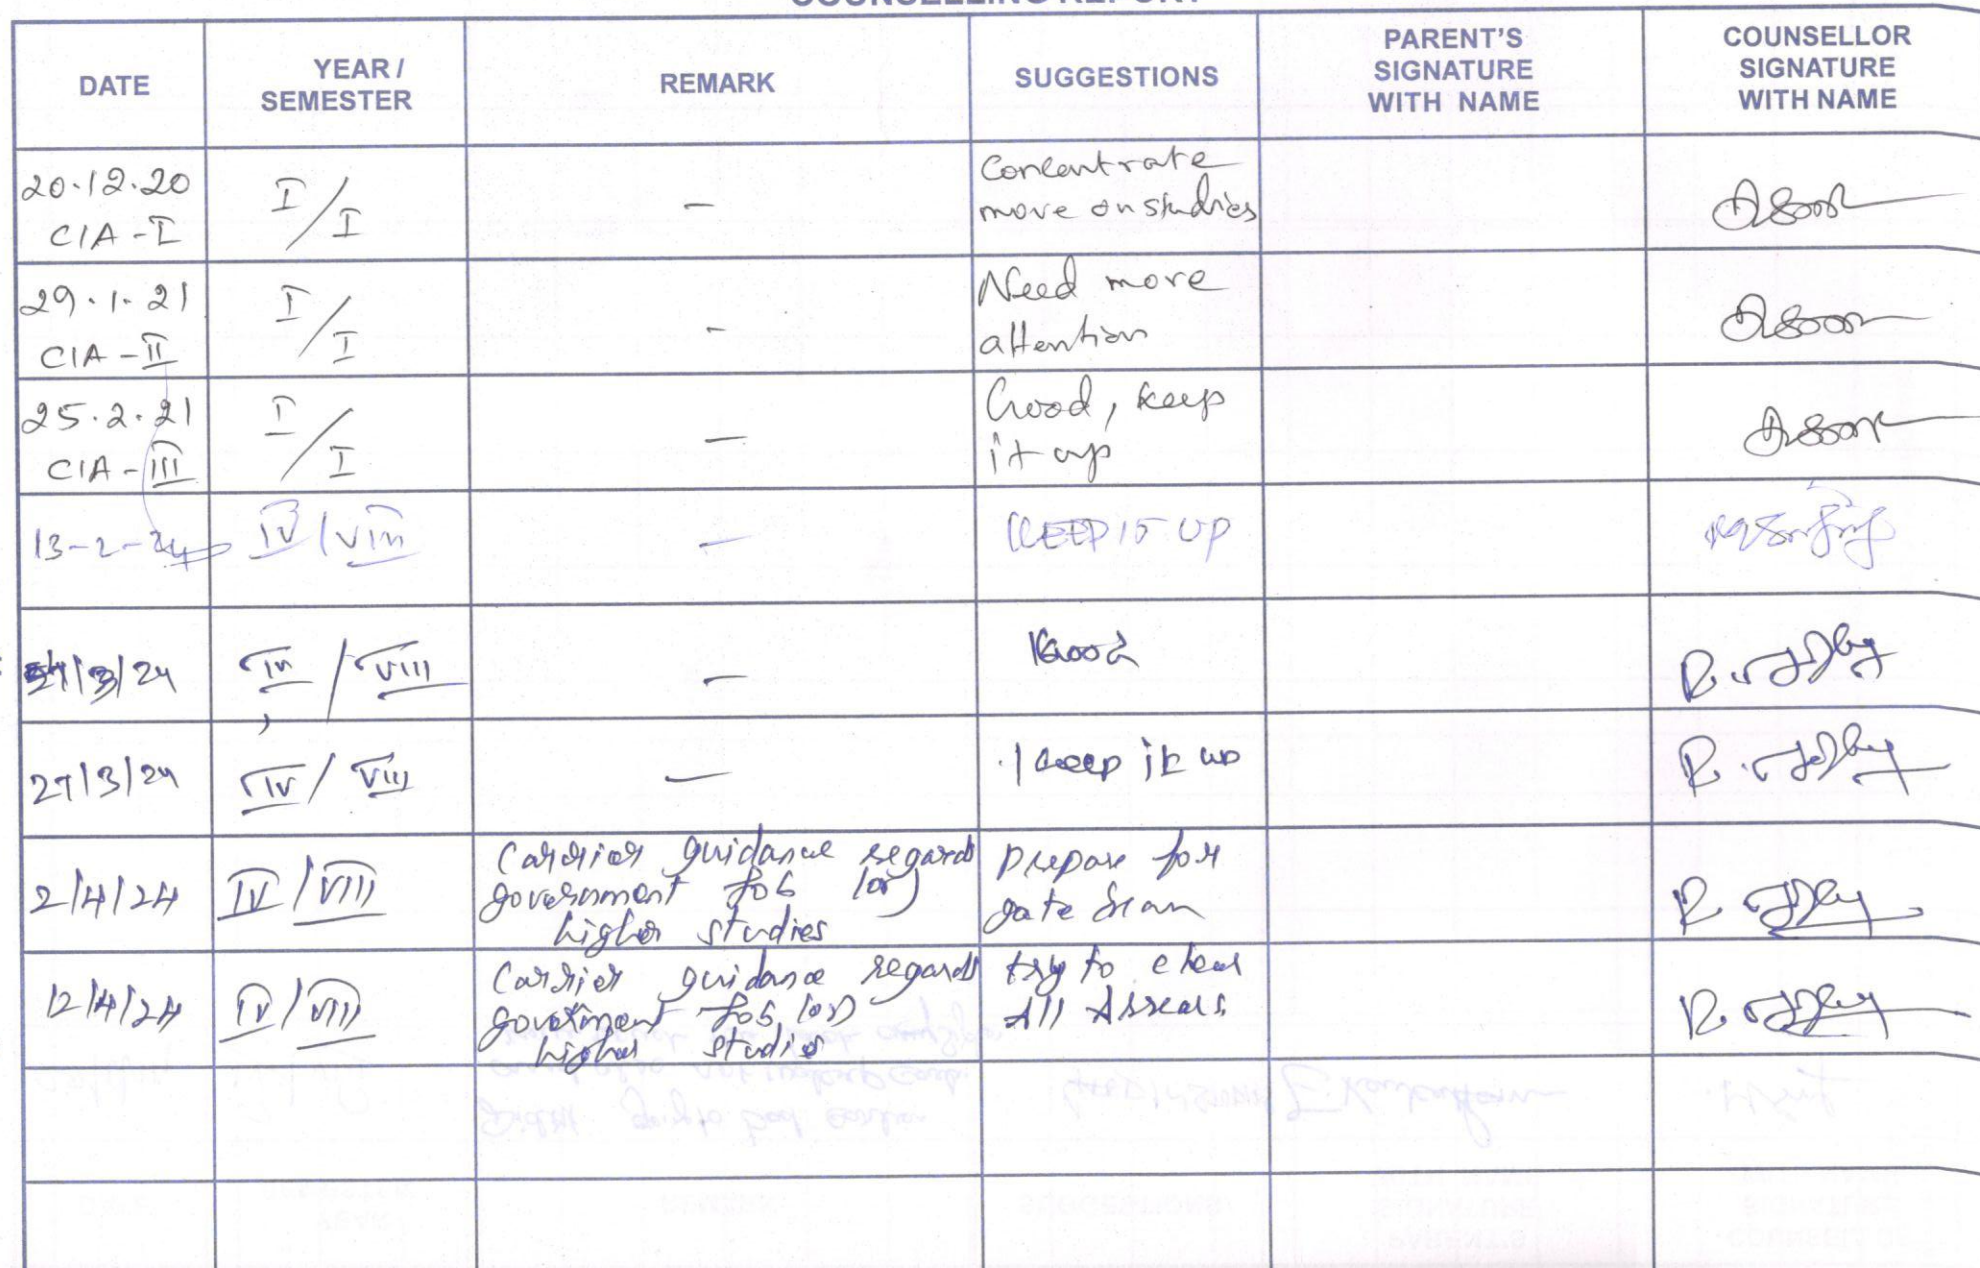 COUNSELLING REPORT
DATE
YEAR /
SEMESTER
REMARK
SUGGESTIONS
PARENT'S
SIGNATURE
WITH NAME
COUNSELLOR
SIGNATURE
WITH NAME
20.12.20
CIA - I
I / I
-
Concentrate
more on studies
29.1.21
CIA - II
I / I
-
Need more
attention
25.2.21
CIA - III
I / I
-
Good, keep
it up
13-2-24
IV / VIII
-
KEEP IT UP
/3/24
IV / VIII
-
Good
27/3/24
IV / VIII
-
keep it up
2/4/24
IV / VIII
Carrier guidance regards
government Job (or)
higher studies
prepare for
gate Exam
12/4/24
IV / VIII
Carrier guidance regards
government Job (or)
higher studies
try to clear
All Arrears